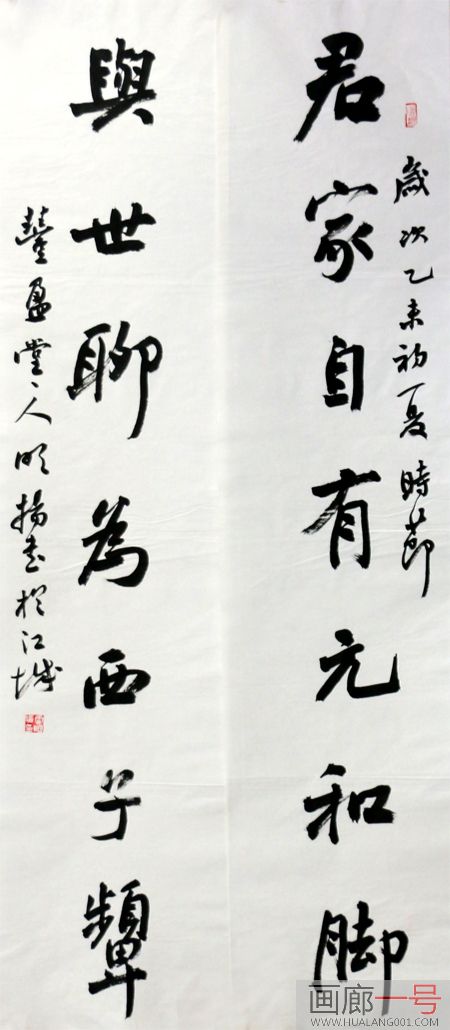 歲次乙未初夏時節
君家自有元和脚
與世聊為西子顰
盈堂主人明揚書於江城
画廊一号
WWW.HUALANG001.COM